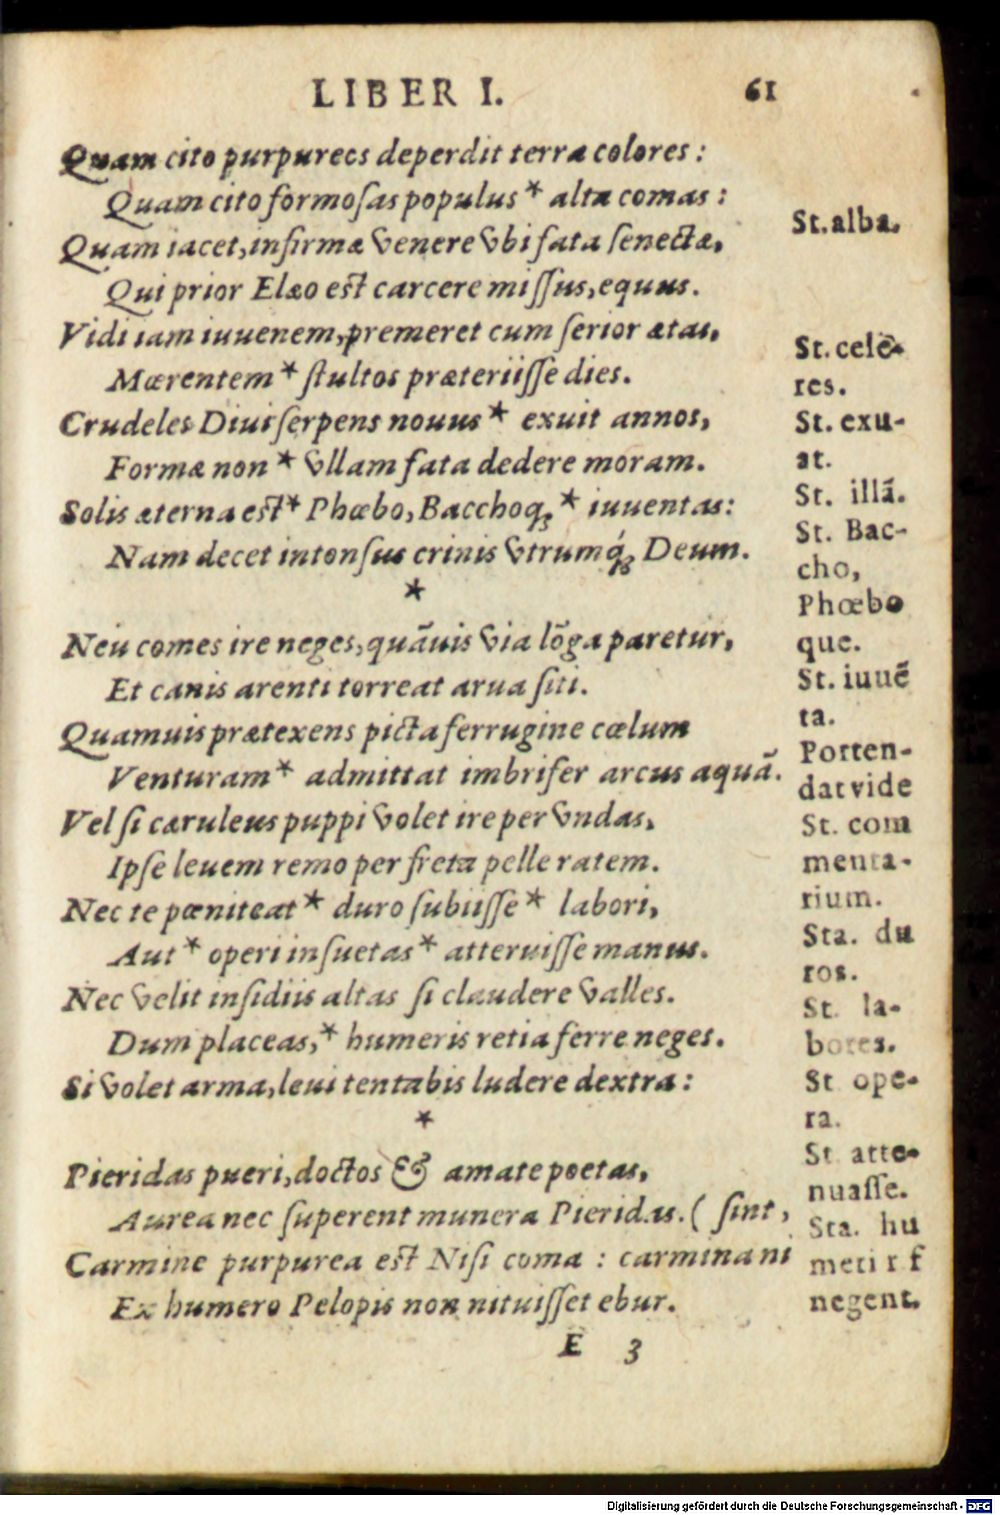 LIBER I. 61
Quam cito purpureos deperdit terra colores:
Quam cito formoſas populus * alta comas:
Quam iacet, infirmæ venere vbi fata ſenectæ,
Qui prior Elæo eſt carcere miſſus, equus.
Vidi iam iuuenem, premeret cum ſerior ætas,
Mœrentem * ſtultos præteriiſſe dies.
Crudeles Diui ſerpens nouus * exuit annos,
Formæ non * vllam fata dedere moram.
Solis æterna eſt * Phœbo, Bacchoq; * iuuentas:
Nam decet intonſus crinis vtrumq́; Deum.
*
Neu comes ire neges, quãuis via lõga paretur,
Et canis arenti torreat arua ſiti.
Quamuis prætexens picta ferrugine cœlum
Venturam * admittat imbrifer arcus aquã.
Vel ſi cæruleus puppi volet ire per vndas,
Ipſe leuem remo per freta pelle ratem.
Nec te pœniteat * duro ſubiiſſe * labori,
Aut * operi inſuetas * atteruiſſe manus.
Nec velit inſidiis altas ſi claudere valles.
Dum placeas, * humeris retia ferre neges.
Si volet arma, leui tentabis ludere dextra:
*
Pieridas pueri, doctos & amate poetas,
Aurea nec ſuperent munera Pieridas. ( ſint,
Carmine purpurea eſt Niſi coma: carmina ni
Ex humero Pelopis non nituiſſet ebur.
E 3
St. alba.
St. celē-
res.
St. exu-
at.
St. illā.
St. Bac-
cho,
Phœbo
que.
St. iuuē
ta.
Porten-
dat vide
St. com
menta-
rium.
Sta. du
ros.
St. la-
bores.
St ope-
ra.
St. atte-
nuaſſe.
Sta. hu
meri r f
negent.
Digitalisierung gefördert durch die Deutsche Forschungsgemeinschaft - DFG